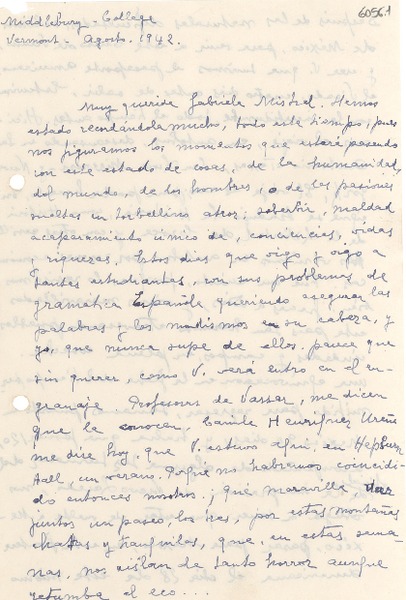 6056.1
Middlebury - College
Vermont - Agosto. 1942.
Muy querida Gabriela Mistral. Hemos
estado recordándola mucho, todo este tiempo, pues
nos figuramos los momentos que estará pasando
con este estado de cosas, de la humanidad,
del mundo, de los hombres, o de las pasiones
sueltas en torbellino atroz; soberbia, maldad
acaparamiento cínico de, conciencias, vidas
y riquezas. Estos días que oigo y oigo a
tantos estudiantes, con sus problemas de
gramática Española queriendo asegurar las
palabras y los modismos en su cabeza, y
yo, que nunca supe de ellos. parece que
sin querer, como V. verá entro en el en-
granaje. Profesores de Vassar, me dicen
que la conocen, Camila Henríquez Ureña
me dice hoy, que V. estuvo aquí, en Hepburn
Hall, un verano. Porqué no habremos coincidi-
do entonces nosotros; ¡qué maravilla, dar
juntos un paseo, los tres, por estas montañas
chatas y tranquilas, que, en estas sema-
nas, nos aíslan de tanto horror aunque
retumba el eco...